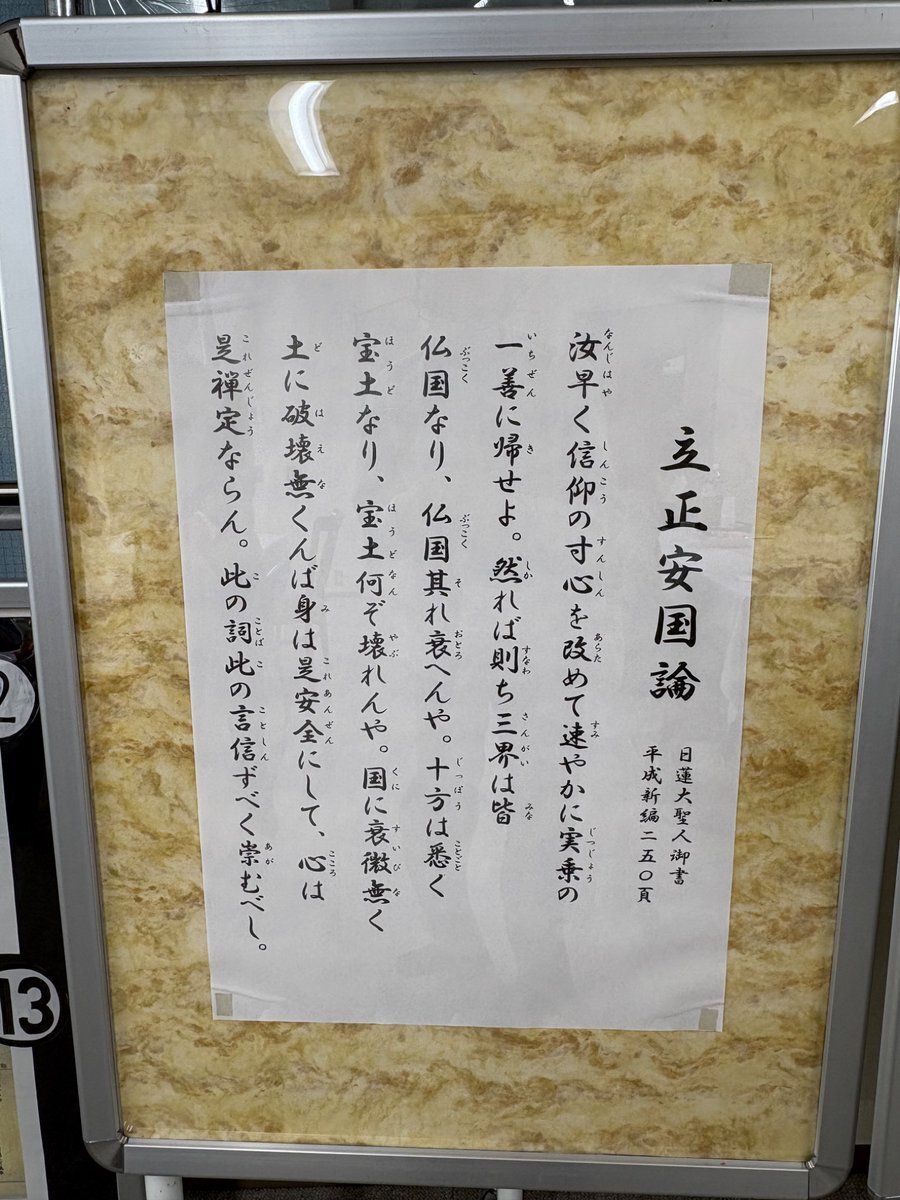 立正安国論
日蓮大聖人御書
平成新編二五〇頁
汝早く信仰の寸心を改めて速やかに実乗の
一善に帰せよ。然れば則ち三界は皆
仏国なり、仏国其れ衰へんや。十方は悉く
宝土なり、宝土何ぞ壊れんや。国に衰微無く
土に破壊無くんば身は是安全にして、心は
是禅定ならん。此の詞此の言信ずべく崇むべし。
13